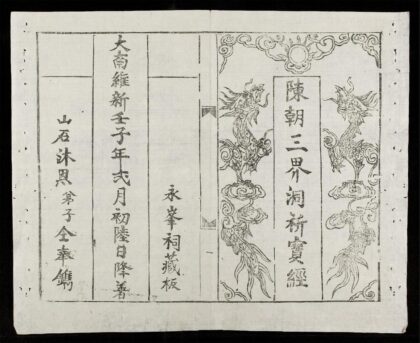 陳朝三界洞祈寶經
一
永峯祠藏板
大南維新壬子年弍月初陸日降著
山石沐恩弟子仝奉鐫